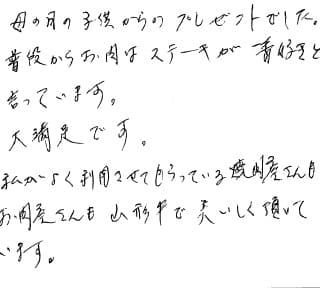 母の日の子供からのプレゼントでした。
普段からお肉はステーキが一番好きと
言っています。
大満足です。
私がよく利用させてもらっている焼肉屋さんも
お肉屋さんも山形牛で美いしく頂いて
います。